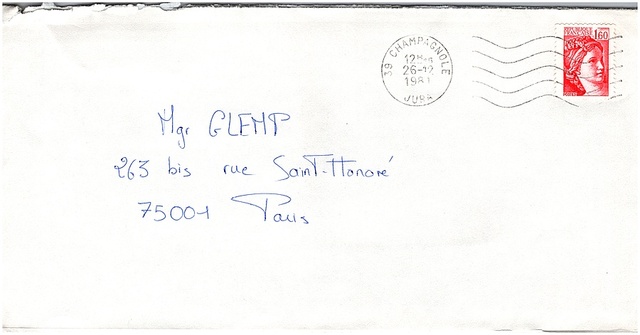 39 CHAMPAGNOLE
26-12
1981
JURA
1,60
Mgr GLEMP
263 bis rue Saint-Honoré
75001 Paris